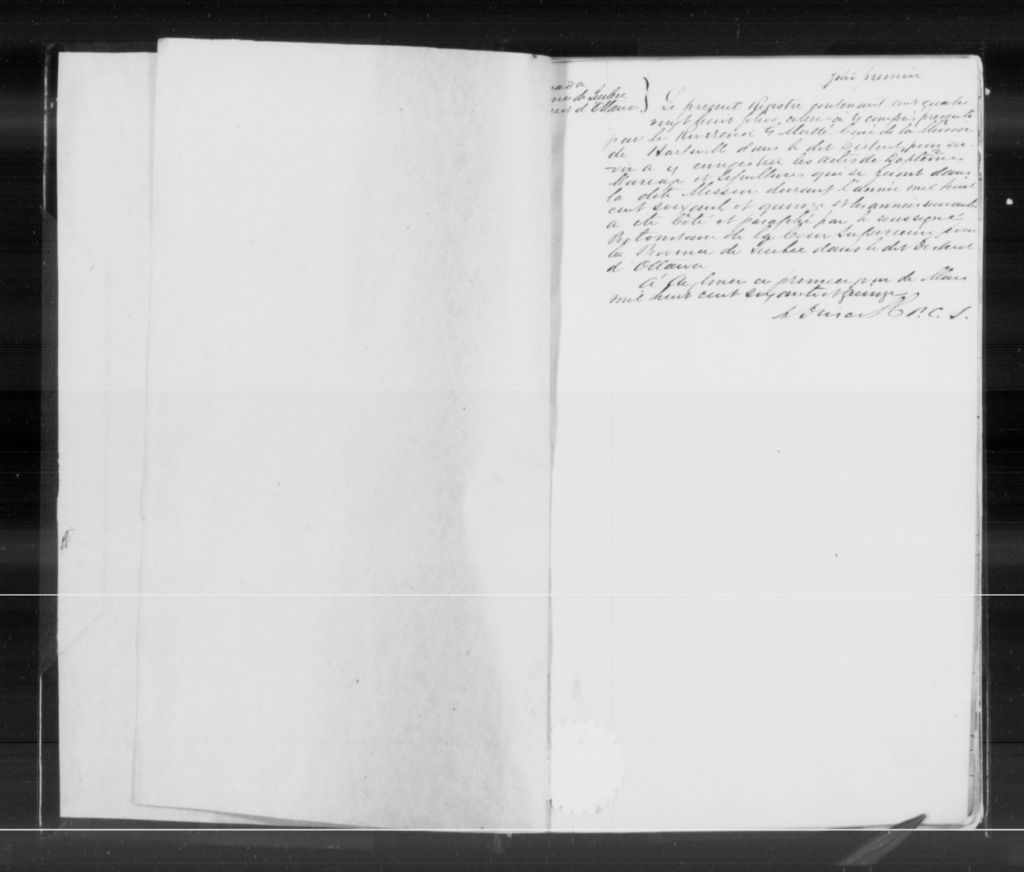 folio premier
nada
nce de Quebec
rict d'Ottawa
Le present Registre contenant cent quatre
vingt huit folios, celui-ci y compris presenté
par le Reverend Mallé Curé de la Mission
de Hartwell dans le dit District, pour ser-
vir a y enregistrer les actes de Baptêmes
Mariages et Sépultures qui se feront dans
la dite Mission durant l'année mil huit
cent soixante et quinze et les années suivantes
a été Coté et paraphé par le soussigné
Protonotaire de la Cour Superieure pour
la Province de Quebec dans le dit District
d'Ottawa
à Aylmer ce premier jour de Mars
mil huit cent soixante et quinze
P. C. S.